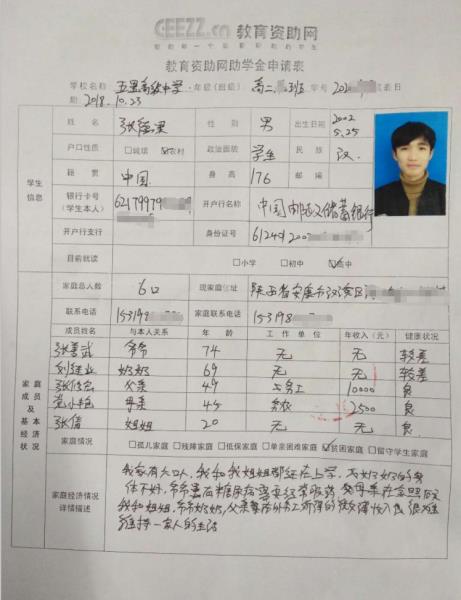 GEEZZ.cn 教育资助网
教育资助网助学金申请表
学校名称 五里高级中学 年级(班级) 高二 班 学号 填表日
期 2018.10.23
姓名 张 性别 男 出生日期 2002 5.25
户口性质 □城镇 ☑农村 政治面貌 学生 民族 汉
籍贯 中国 身高 176 邮编
学生信息
银行卡号(学生本人) 6217997 开户行名称 中国邮政储蓄银行
开户行支行 身份证号 6124 200
目前就读 □小学 □初中 ☑高中
家庭总人数 6口 现家庭住址 陕西省安康市汉滨区
联系电话 153198 家庭联系电话 153198
成员姓名 与本人关系 年龄 工作单位 年收入(元) 健康状况
张善武 爷爷 74 无 无 较差
刘继业 奶奶 69 无 无 较差
家庭成员及基本经济状况
张 父亲 49 务工 10000 良
母亲 45 务农 2500 良
张倩 姐姐 20 无 无 良
家庭情况 □孤儿家庭 □残障家庭 □低保家庭 □单亲困难家庭 ☑贫困家庭 □留守学生家庭
家庭经济情况详情描述
我家有六口人,我和我姐姐都还在上学,爷奶奶的身
体不好,爷爷患有糖尿病需要经常吃药 母亲在家照顾
我和姐姐,爷爷奶奶,父亲 外务工所得的微薄收入 很难
维持一家人的生活